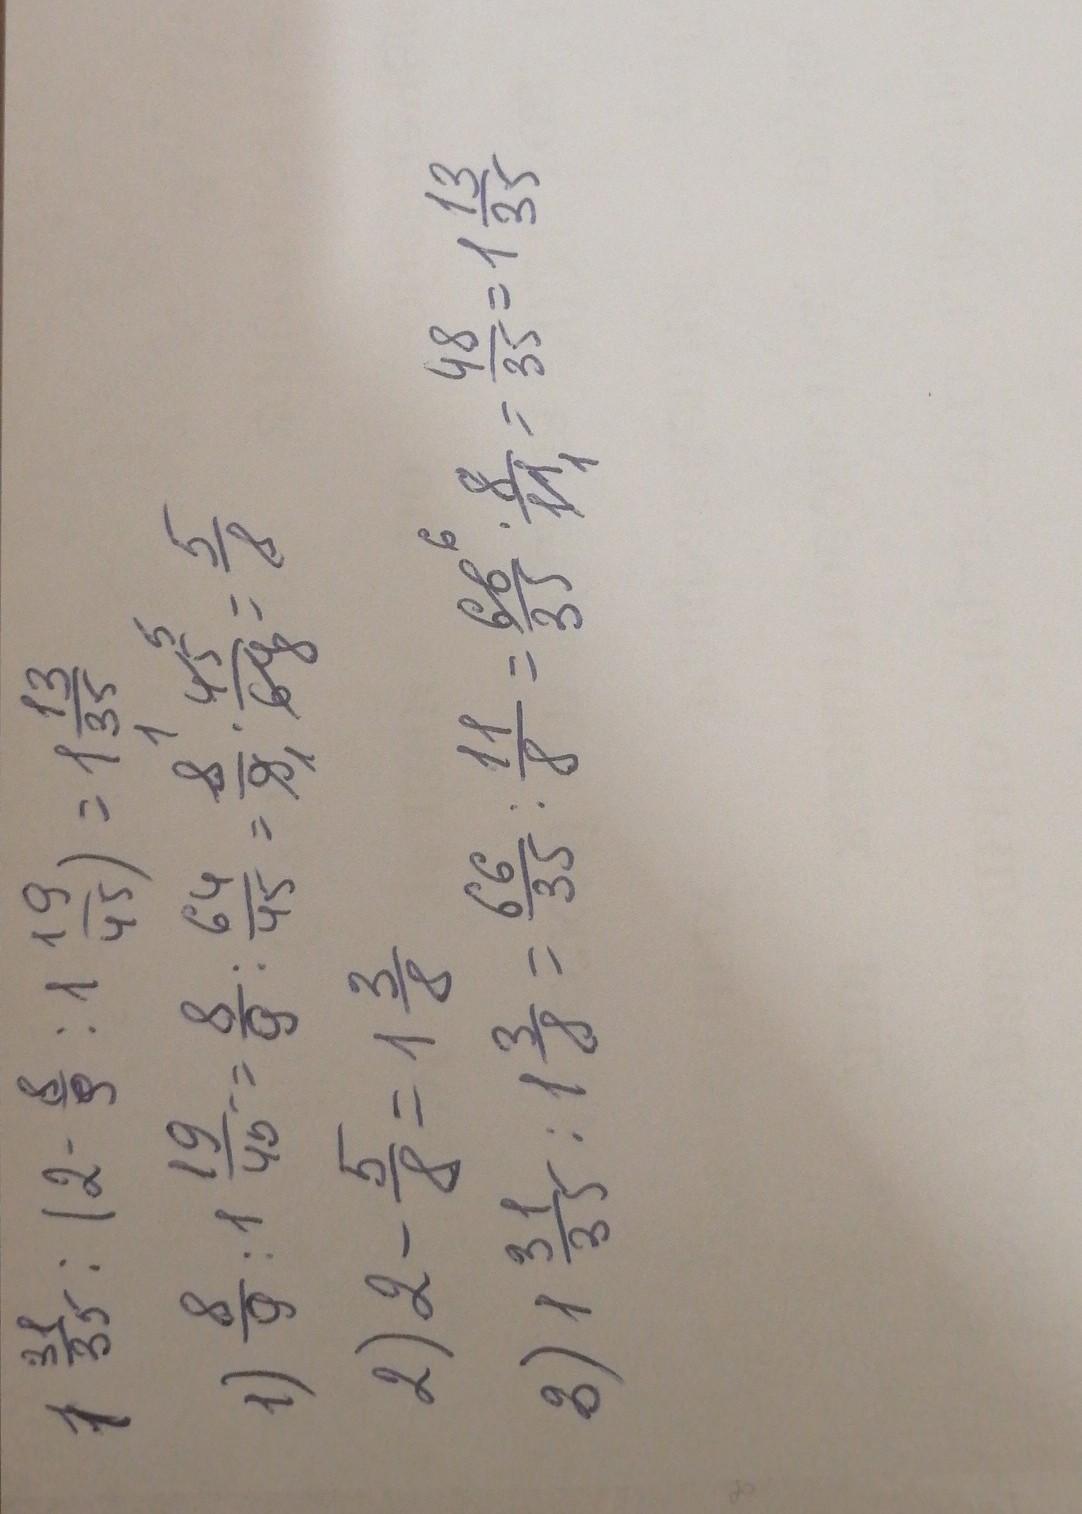 1 31/35 : (2 - 8/9 : 1 19/45) = 1 13/35
1) 8/9 : 1 19/45 = 8/9 : 64/45 = 8/9 · 45/64 = 5/8
2) 2 - 5/8 = 1 3/8
3) 1 31/35 : 1 3/8 = 66/35 : 11/8 = 66/35 · 8/11 = 48/35 = 1 13/35